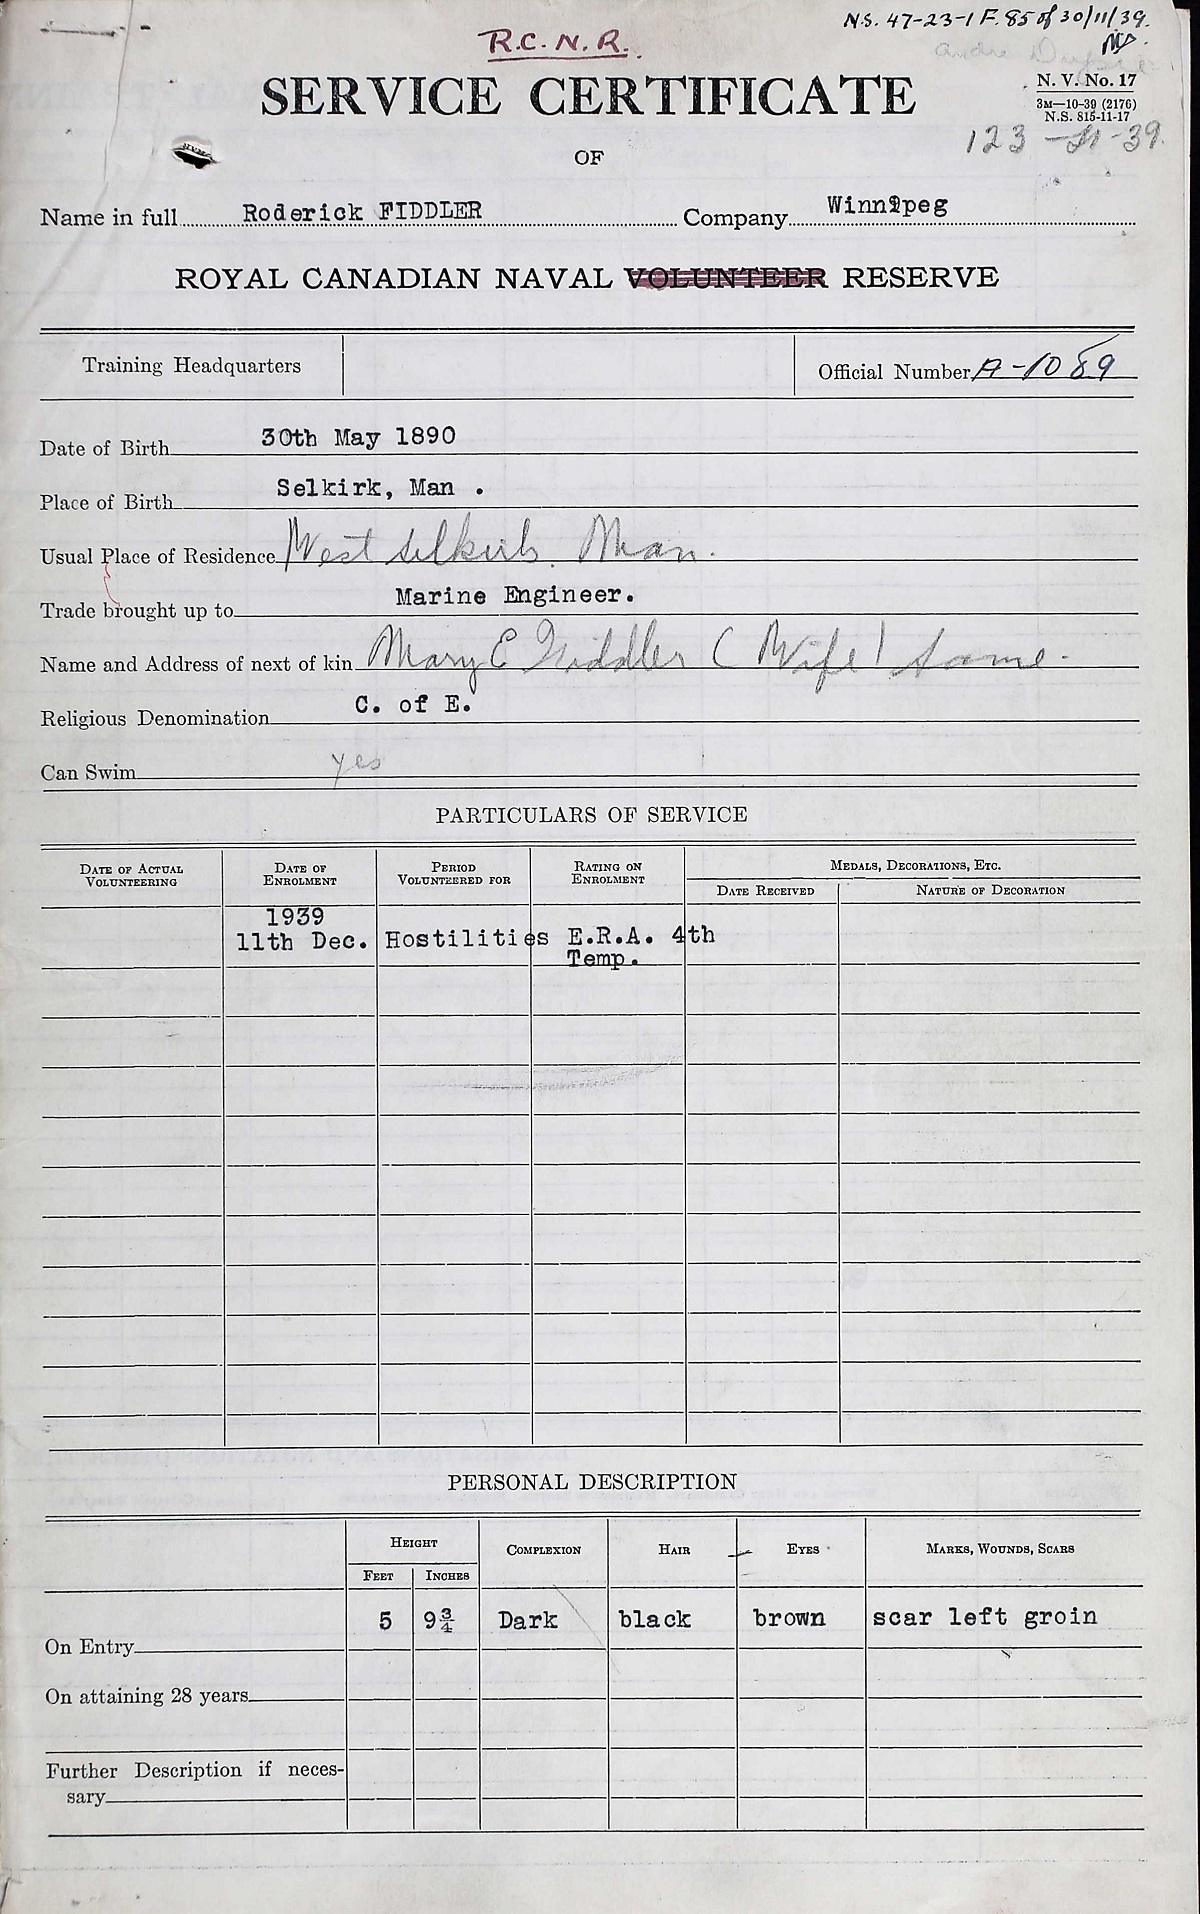 N.S. 47-23-1 F. 85 of 30/11/39.
R.C.N.R.
SERVICE CERTIFICATE
N. V. No. 17
3M—10-39 (2176)
N.S. 815-11-17
OF
Name in full Roderick FIDDLER Company Winnipeg
ROYAL CANADIAN NAVAL VOLUNTEER RESERVE
Training Headquarters Official Number A-1089
Date of Birth 30th May 1890
Place of Birth Selkirk, Man .
Usual Place of Residence West Selkirk. Man.
Trade brought up to Marine Engineer.
Name and Address of next of kin Mary E Fiddler (Wife) Same.
Religious Denomination C. of E.
Can Swim yes
PARTICULARS OF SERVICE
DATE OF ACTUAL VOLUNTEERING DATE OF ENROLMENT PERIOD VOLUNTEERED FOR RATING ON ENROLMENT MEDALS, DECORATIONS, ETC.
DATE RECEIVED NATURE OF DECORATION
1939
11th Dec. Hostilities E.R.A. 4th
Temp.
PERSONAL DESCRIPTION
HEIGHT COMPLEXION HAIR EYES MARKS, WOUNDS, SCARS
FEET INCHES
On Entry 5 9¾ Dark black brown scar left groin
On attaining 28 years
Further Description if neces-
sary